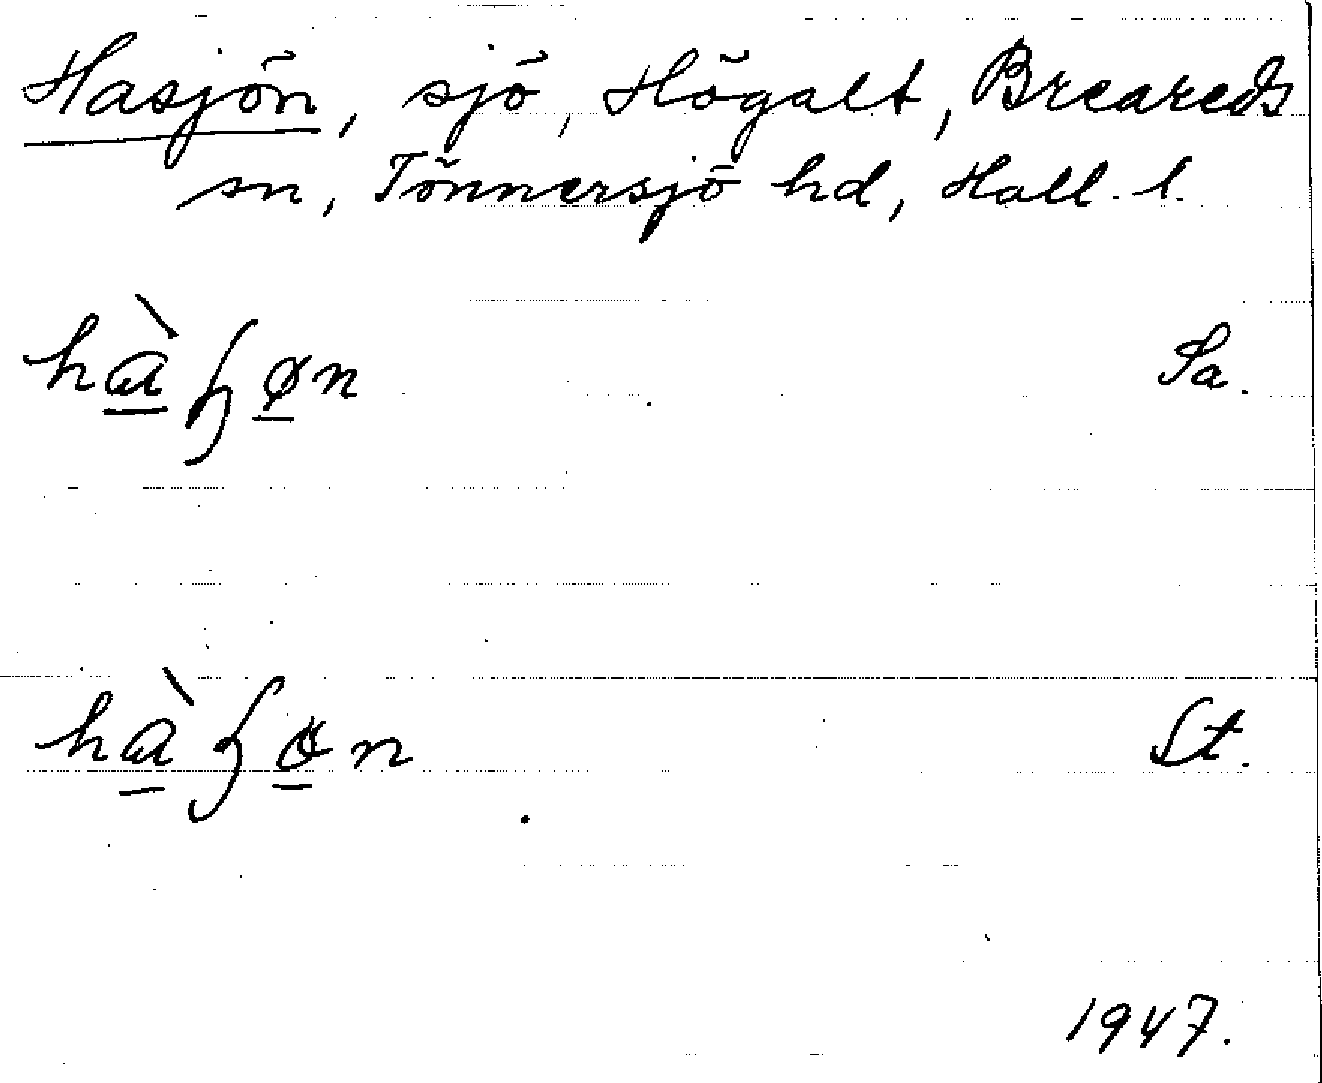 Hasjön, sjö, Högalt, Breareds
sn, Tönnersjö hd, Hall. l.
hà̱ɧø̱n Sa.
hà̱ɧø̱n St.
1947.